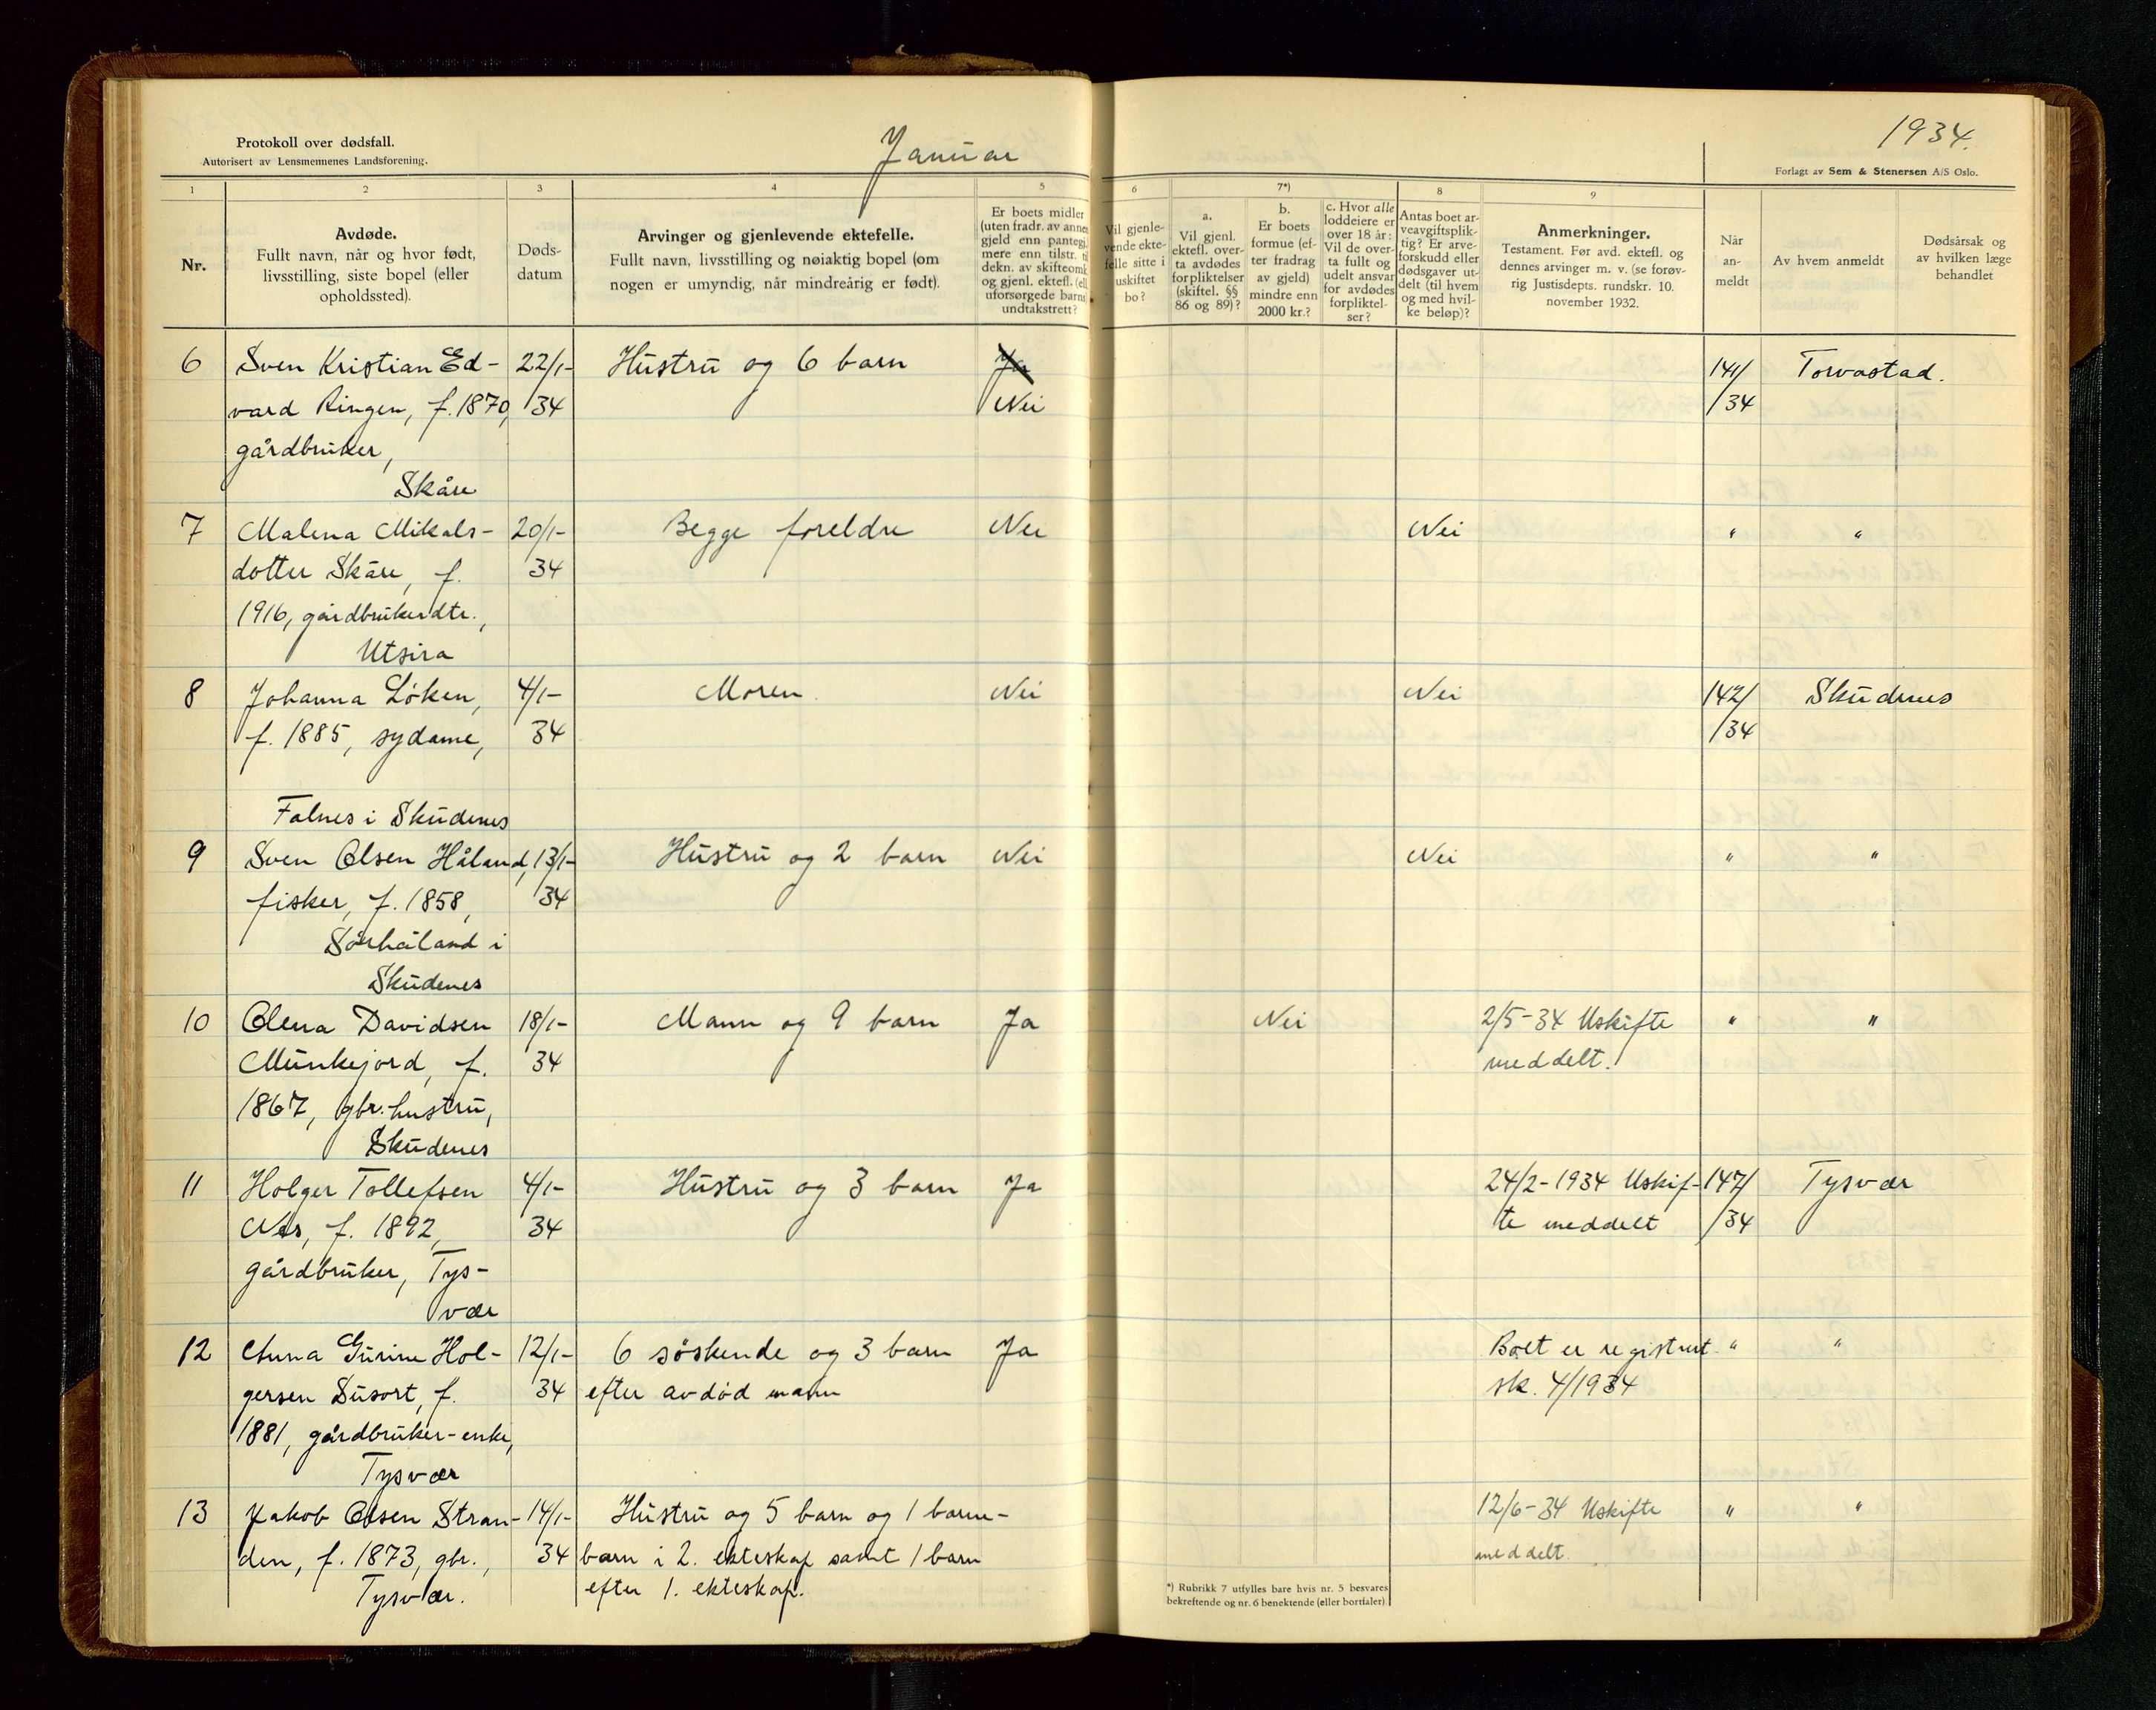 Protokoll over dødsfall.
Autorisert av Lensmennenes Landsforening.
Januar
1934.
Forlagt av Sem & Stenersen A/S Oslo.
1
2
3
4
5
6
7*)
8
9
Nr.
Avdøde.
Fullt navn, når og hvor født,
livsstilling, siste bopel (eller
opholdssted).
Døds-
datum
Arvinger og gjenlevende ektefelle.
Fullt navn, livsstilling og nøiaktig bopel (om
nogen er umyndig, når mindreårig er født).
Er boets midler
(uten fradr. av annen
gjeld enn pantegj.
mere enn tilstr. ti
dekn. av skifteomk
og gjenl. ektefl. (ell
uforsørgede barns
undtakstrett?
Vil gjenle-
vende ekte-
felle sitte i
uskiftet
bo?
a.
Vil gjenl.
ektefl. over-
ta avdødes
forpliktelser
(skiftel. §§
86 og 89)?
b.
Er boets
formue (ef-
ter fradrag
av gjeld)
mindre enn
2000 kr.?
c. Hvor alle
loddeiere er
over 18 år:
Vil de over-
ta fullt og
udelt ansvar
for avdødes
forpliktel-
ser?
Antas boet ar-
veavgiftsplik-
tig? Er arve-
forskudd eller
dødsgaver ut-
delt (til hvem
og med hvil-
ke beløp)?
Anmerkninger.
Testament. Før avd. ektefl. og
dennes arvinger m. v. (se forøv-
rig Justisdepts. rundskr. 10.
november 1932.
Når
an-
meldt
Av hvem anmeldt
Dødsårsak og
av hvilken læge
behandlet
6 Sven Kristian Ed- 22/1- Hustru og 6 barn Ja 141/ Torvastad.
vard Ringen, f. 1870, 34 Nei /34
gårdbruker,
Skåre
7 Malena Mikals- 20/1- Begge foreldre Nei Nei " "
dotter Skåre, f. 34
1916, gårdbrukerdtr.,
Utsira
8 Johanna Løken, 4/1- Moren Nei Nei 142/ Skudenes
f. 1885, sydame, 34 /34
Falnes i Skudenes
9 Sven Olsen Håland, 13/1- Hustru og 2 barn Nei Nei " "
fisker, f. 1858, 34
Sørhåland i
Skudenes
10 Olena Davidsen 18/1- Mann og 9 barn Ja Nei 2/5-34 Uskifte " "
Munkejord, f. 34 meddelt.
1867, gbr.hustru,
Skudenes
11 Holger Tollefsen 4/1- Hustru og 3 barn Ja 24/2-1934 Uskif- 147/ Tysvær
Nes, f. 1892, 34 te meddelt /34
gårdbruker, Tys-
vær
12 Anna Gurine Hol- 12/1- 6 søskende og 3 barn Ja Boet er registrert " "
gersen Susort, f. 34 efter avdød mann sk. 4/1934
1881, gårdbruker-enke,
Tysvær
13 Jakob Olsen Stran- 14/1- Hustru og 5 barn og 1 barne- 12/6-34 Uskifte " "
den, f. 1873, gbr., 34 barn i 2. ekteskap samt 1 barn meddelt.
Tysvær. efter 1. ekteskap.
*) Rubrikk 7 utfylles bare hvis nr. 5 besvares
bekreftende og nr. 6 benektende (eller bortfaler)